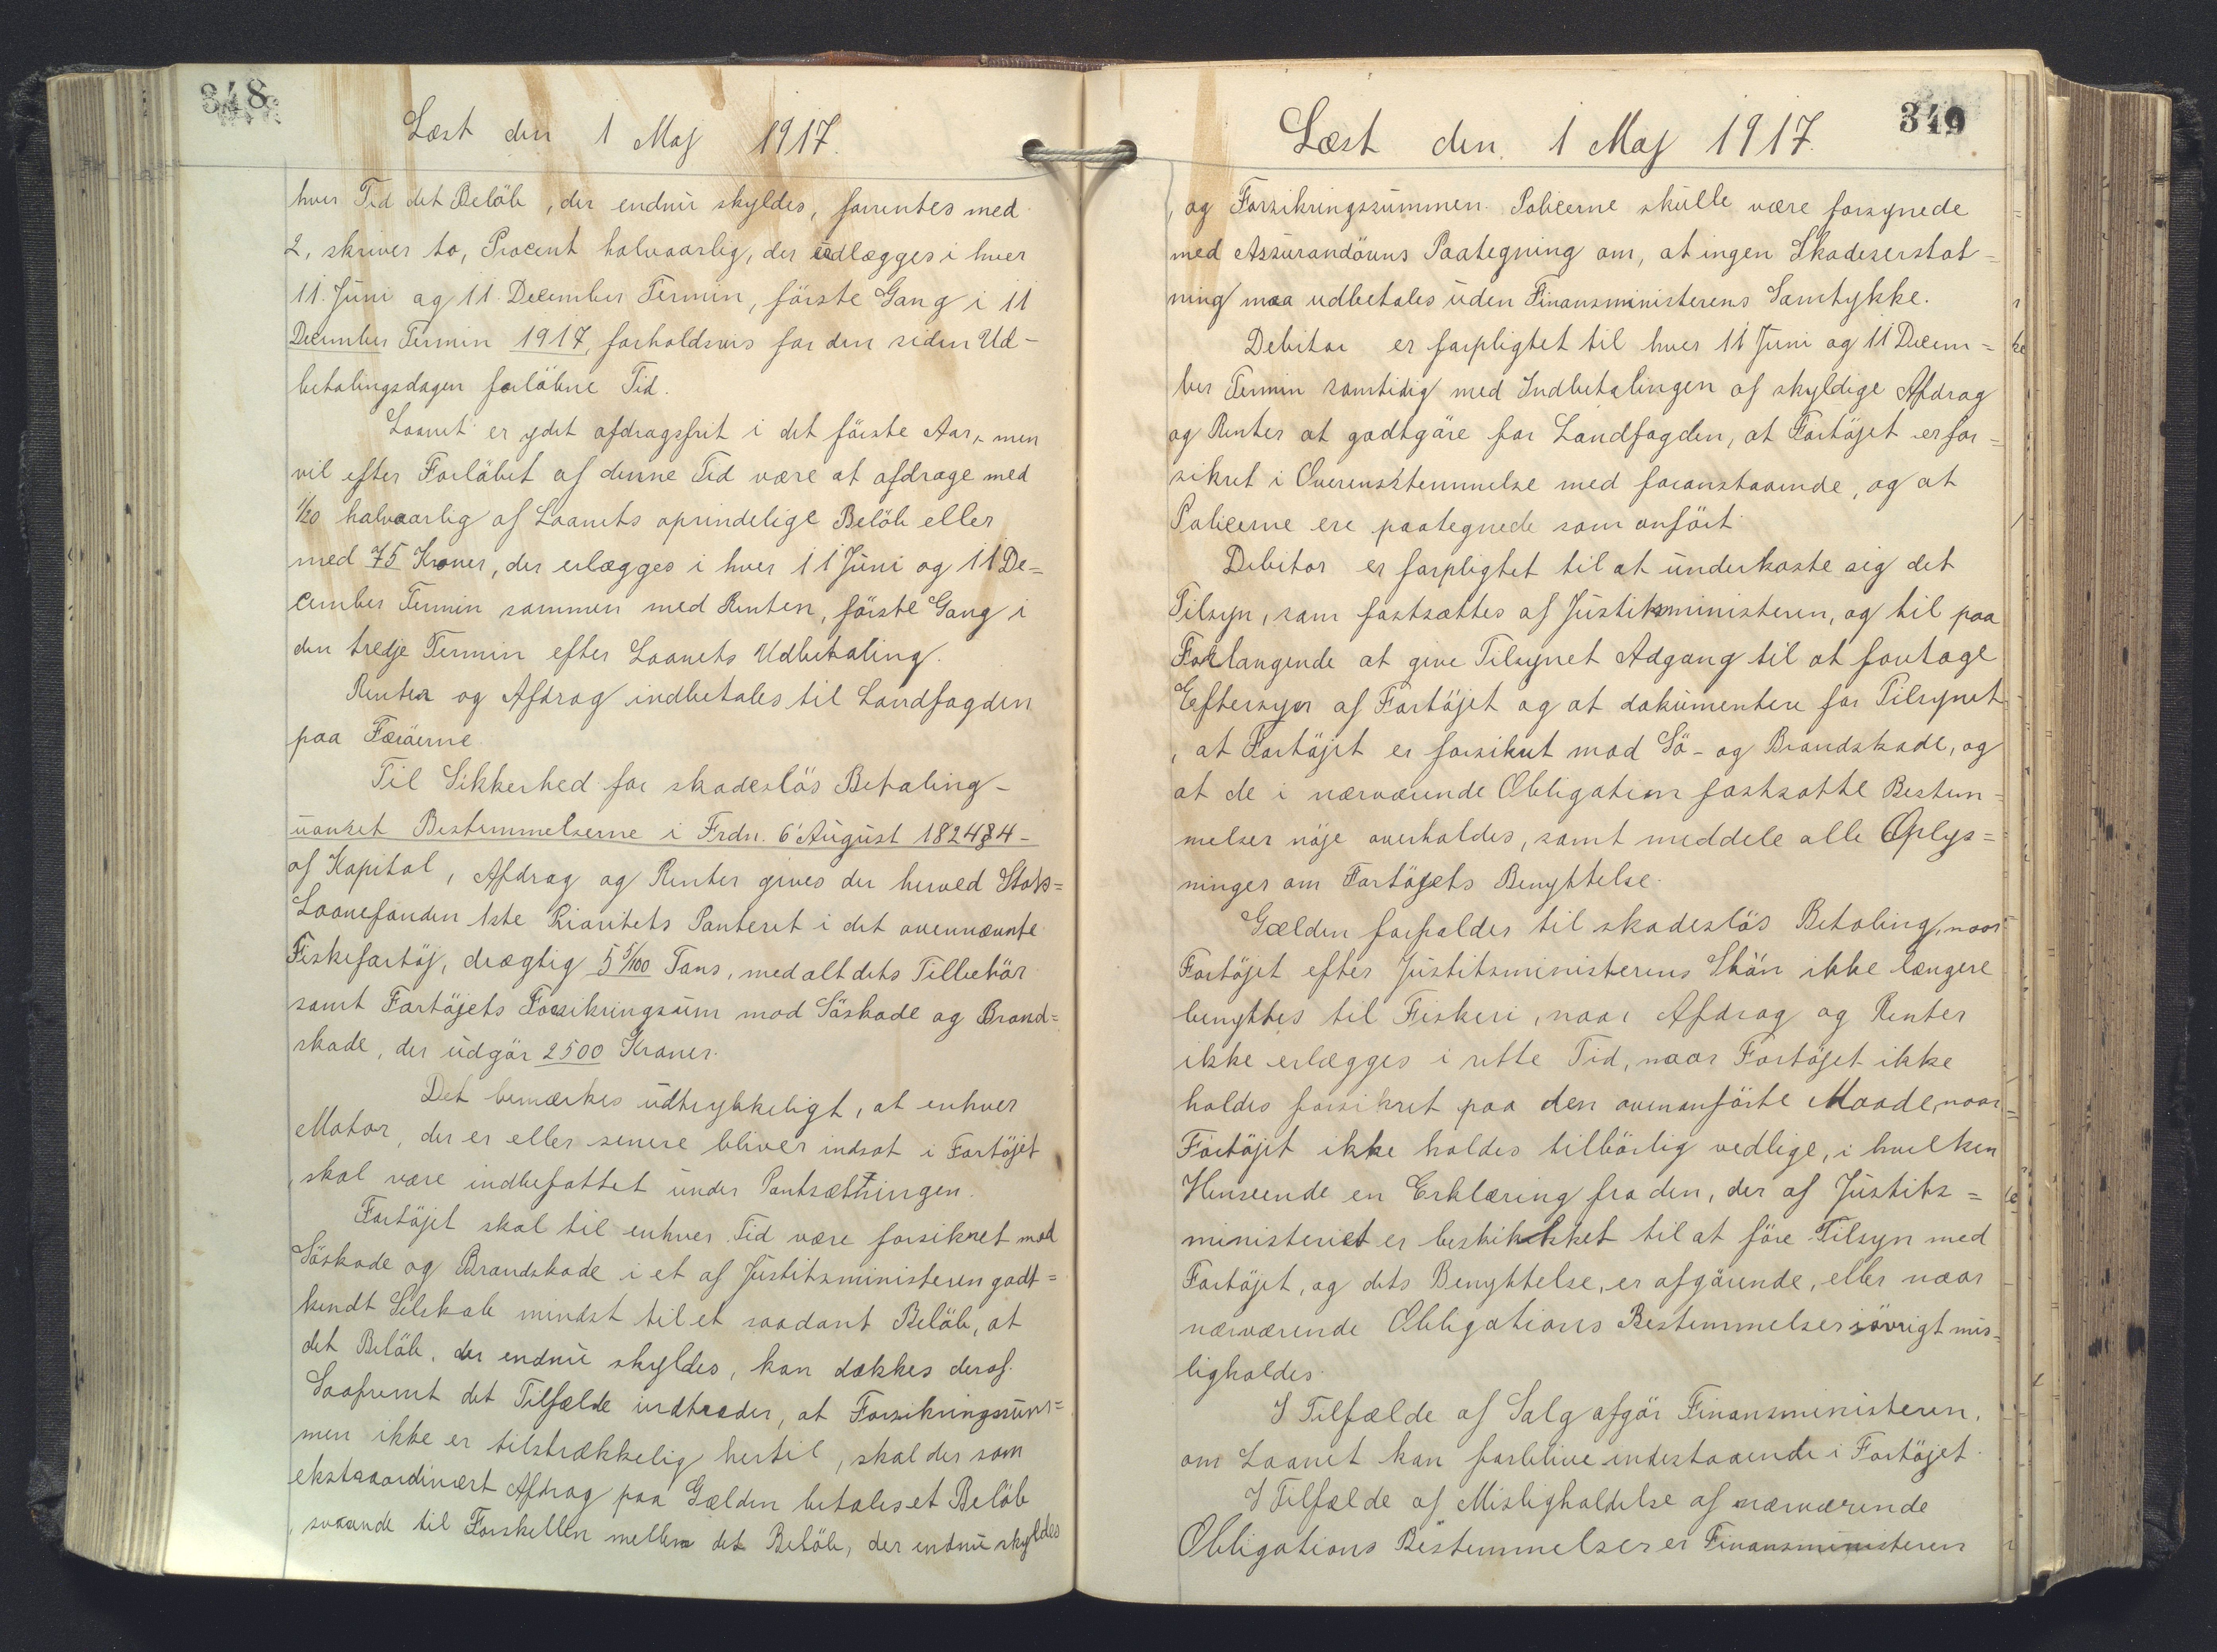 348
Læst den 1 Maj 1917.
hver Tid det Beløb, der endnu skyldes, forrentes med
2, skriver to, Procent halvaarlig, der udlægges i hver
11. Juni og 11. December Termin, første Gang i 11
December Termin 1917, forholdsvis for den siden Ud-
betalingsdagen forløbne Tid.
Laanet er ydet afdragsfrit i det første Aar, men
vil efter Forløbet af denne Tid være at afdrage med
1/20 halvaarlig af Laanets oprindelige Beløb eller
med 75 Kroner, der erlægges i hver 11 Juni og 11 De=
cember Termin sammen med Renten, første Gang i
den tredje Termin efter Laanets Udbetaling.
Renter og Afdrag indbetales til Landfogden
paa Færøerne.
Til Sikkerhed for skadesløs Betaling -
uanset Bestemmelserne i Frdn. 6 August 1824 § 4 -
af Kapital, Afdrag og Renter gives der herved Stats=
Laanefonden 1ste Prioritets Panteret i det ovennævnte
Fiskefartøj, drægtig 5 5/100 Tons, med alt dets Tilbehør
samt Fartøjets Forsikringsum mod Søskade og Brand=
skade, der udgør 2500 Kroner.
Det bemærkes udtrykkeligt, at enhver
Motor, der er eller senere bliver indsat i Fartøjet
, skal være indbefattet under Pantsætningen.
Fartøjet skal til enhver Tid være forsikret mod
Søskade og Brandskade i et af Justitsministeren godt=
kendt Selskab mindst til et saadant Beløb, at
det Beløb, der endnu skyldes, kan dækkes deraf.
Saafremt det Tilfælde indtræder, at Forsikringssum=
men ikke er tilstrækkelig hertil, skal der som
ekstraordinært Afdrag paa Gælden betales et Beløb
, svarende til Forskellen mellem det Beløb, der endnu skyldes
349
Læst den 1 Maj 1917.
, og Forsikringssummen. Policerne skulle være forsynede
med Assurandørens Paategning om, at ingen Skadeserstat=
ning maa udbetales uden Finansministerens Samtykke.
Debitor er forpligtet til hver 11 Juni og 11 Decem=
ber Termin samtidig med Indbetalingen af skyldige Afdrag
og Renter at godtgøre for Landfogden, at Fartøjet er for=
sikret i Overensstemmelse med foranstaaende, og at
Policerne ere paategnede som anført.
Debitor er forpligtet til at underkaste sig det
Tilsyn, som fastsættes af Justitsministeren, og til paa
Forlangende at give Tilsynet Adgang til at foretage
Eftersyn af Fartøjet og at dokumentere for Tilsynet
, at Fartøjet er forsikret mod Sø- og Brandskade, og
at de i nærværende Obligation fastsatte Bestem=
melser nøje overholdes, samt meddele alle Oplys=
ninger om Fartøjets Benyttelse.
Gælden forfalder til skadesløs Betaling, naar
Fartøjet efter Justitsministerens Skøn ikke længere
benyttes til Fiskeri, naar Afdrag og Renter
ikke erlægges i rette Tid, naar Fartøjet ikke
holdes forsikret paa den ovenanførte Maade, naar
Fartøjet ikke holdes tilbørlig vedlige, i hvilken
Henseende en Erklæring fra den, der af Justits=
ministeriet er beskikket til at føre Tilsyn med
Fartøjet, og dets Benyttelse, er afgørende, eller naar
nærværende Obligations Bestemmelser iøvrigt mis=
ligholdes.
I Tilfælde af Salg afgør Finansministeren,
om Laanet kan forblive indestaaende i Fartøjet.
I Tilfælde af Misligholdelse af nærværende
Obligations Bestemmelser er Finansministeren